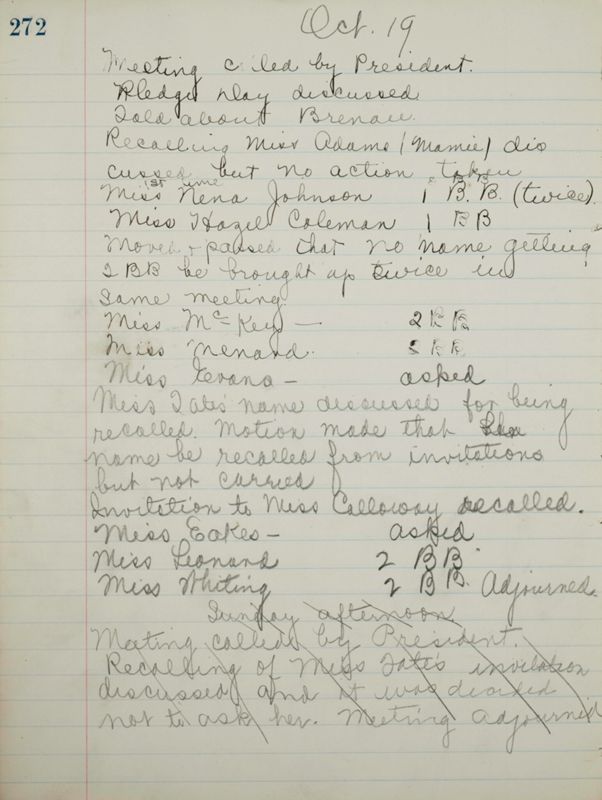 272
Oct. 19
Meeting called by President.
Pledge Day discussed
Told about Brenau.
Recalling Miss Adams (Mamie) dis
cussed but no action taken
1st time
Miss Nena Johnson 1 B.B. (twice).
Miss Hazel Coleman 1 BB
Moved & passed that no name getting
2 BB be brought up twice in
same meeting.
Miss McKey — 2 BB
Miss Menard. BB
Miss Evans — asked
Miss Tates' name discussed for being
recalled. Motion made that
name be recalled from invitations
but not carried
Invitation to Miss Calloway recalled.
Miss Eakes — asked
Miss Leonard 2 BB.
Miss Whiting 2 BB. Adjourned.
Sunday afternoon
Meeting called by President.
Recalling of Miss Tates invitation
discussed and it was decided
not to ask her. Meeting adjourned